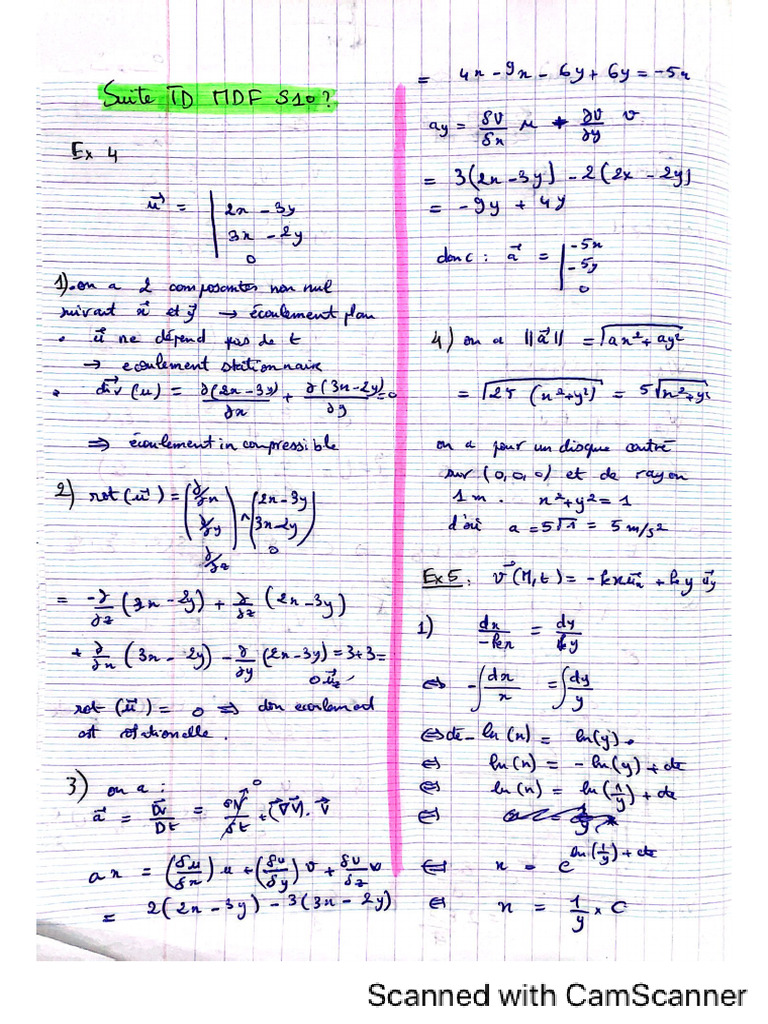 Suite TD MDF S10?
Ex 4
u⃗ = | 2x - 3y
3x - 2y
0
1) . on a 2 composantes non nul
suivant x⃗ et y⃗ → écoulement plan
. u⃗ ne dépend pas de t
→ ecoulement stationnaire
. div(u) = ∂(2x-3y)/∂x + ∂(3x-2y)/∂y = 0
⇒ écoulement incompressible
2) rot(u⃗) = (∂/∂x ∂/∂y ∂/∂z) ∧ (2x-3y 3x-2y 0)
= -∂/∂z (3x - 2y) + ∂/∂z (2x - 3y)
+ ∂/∂x (3x - 2y) - ∂/∂y (2x - 3y) = 3+3 =
rot (u⃗) = 0 ⇒ don ecoulement
est rotationelle.
3) on a :
a⃗ = Dv⃗/Dt = ∂V⃗/∂t + (∇⃗V⃗). V⃗
0
ax = (δu/δx) u + (δu/δy) v + δu/δz w
= 2(2x - 3y) - 3(3x - 2y)
= 4x - 9x - 6y + 6y = -5x
ay = δV/δx u + ∂V/∂y v
= 3(2x - 3y) - 2(2x - 2y)
= -9y + 4y
donc : a⃗ = | -5x
-5y
0
4) on a ||a⃗|| = √ax² + ay²
= √25 (x²+y²) = 5√x²+y²
on a pour un disque centré
sur (0,0,0) et de rayon
1m. x²+y² = 1
d'où a = 5√1 = 5 m/s²
Ex 5 : v⃗(M,t) = -kx u⃗x + ky u⃗y
1) dx/-kx = dy/ky
⇔ -∫dx/x = ∫dy/y
⇔ - ln(x) = ln(y) .
⇔ ln(x) = - ln(y) + cte
⇔ ln(x) = ln(1/y) + cte
⇔
⇔ x = e^ln(1/y) + cte
⇔ x = 1/y × C
Scanned with CamScanner